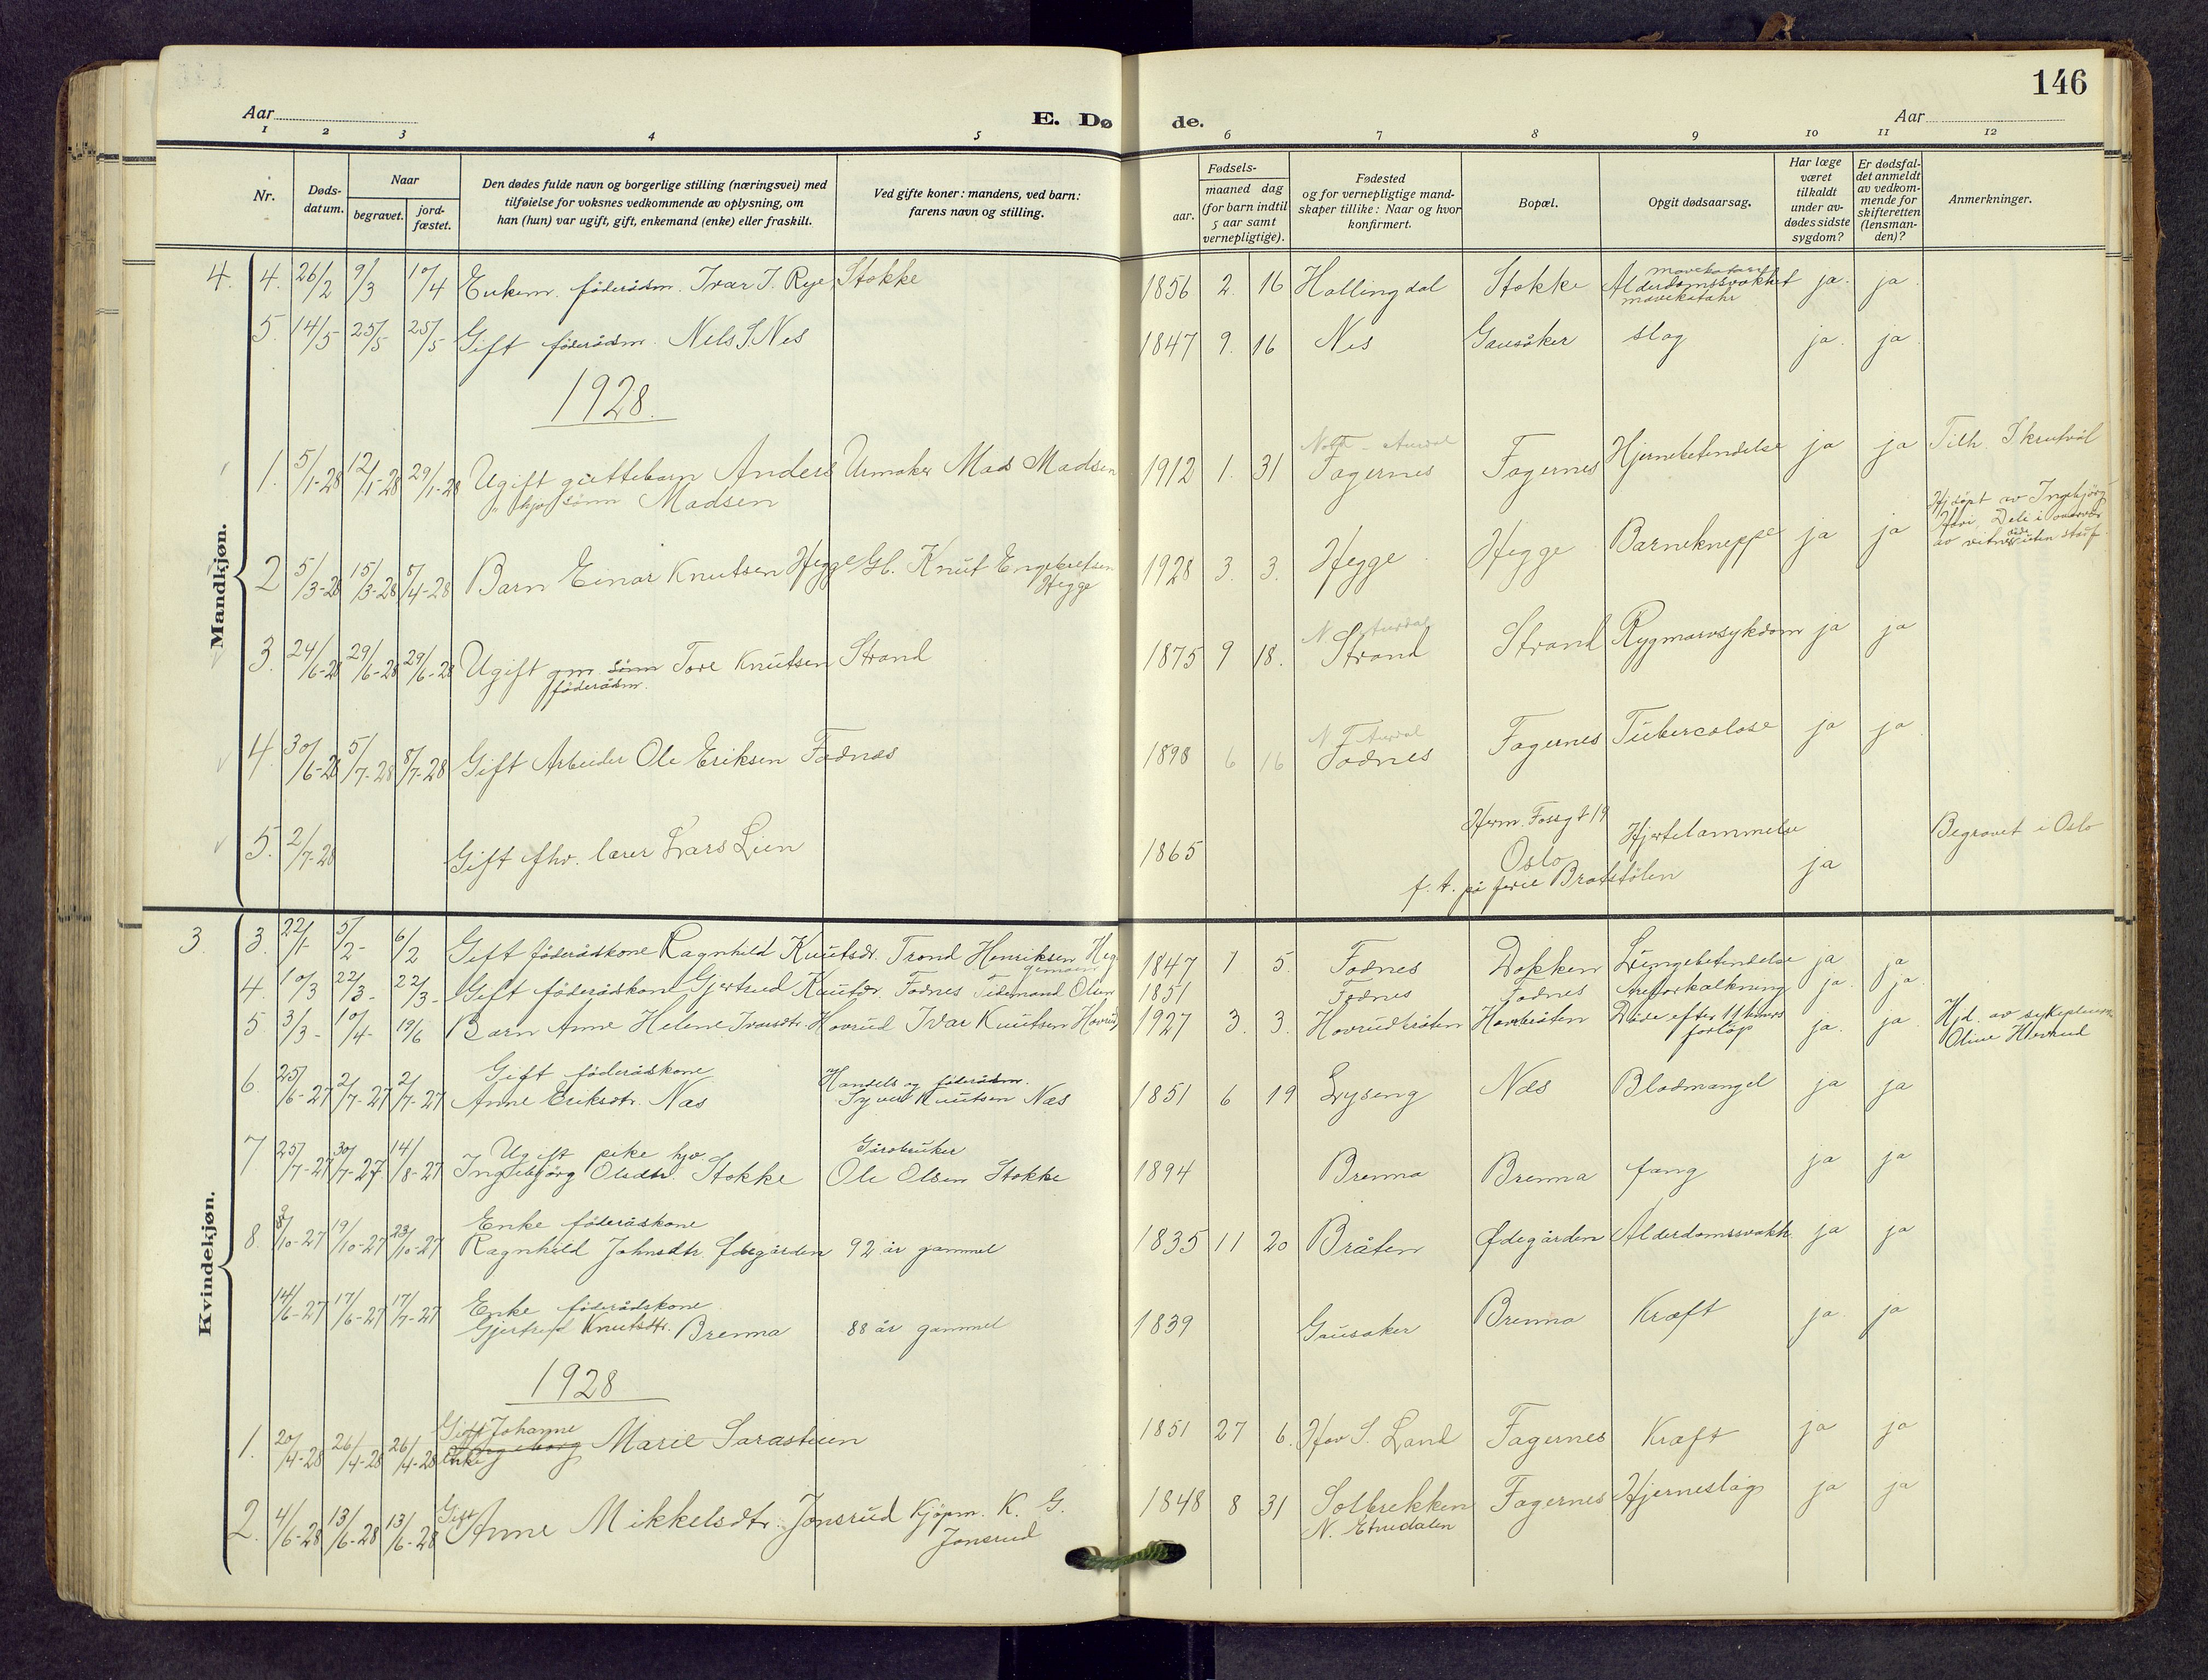 146
Aar
E. Dø de.
Aar
1 2 3 4 5 6 7 8 9 10 11 12
Nr.
Døds-datum.
Naar
begravet.
jord-fæstet.
Den dødes fulde navn og borgerlige stilling (næringsvei) med
tilføielse for voksnes vedkommende av oplysning, om
han (hun) var ugift, gift, enkemand (enke) eller fraskilt.
Ved gifte koner: mandens, ved barn:
farens navn og stilling.
Fødsels-
aar.
maaned dag
(for barn indtil
5 aar samt
vernepligtige).
Fødested
og for vernepligtige mand-
skaper tillike: Naar og hvor
konfirmert.
Bopæl.
Opgit dødsaarsag.
Har læge
været
tilkaldt
under av-
dødes sidste
sygdom?
Er dødsfal-
det anmeldt
av vedkom-
mende for
skifteretten
(lensman-
den)?
Anmerkninger.
Mandkjøn.
4. 4. 26/2 9/3 10/4 Enkem. föderådm. Ivar I. Rye Stokke 1856 2. 16 Hallingdal Stokke Alderdomssvakhet mavekatahr ja. ja.
5. 14/5 25/5 25/5 Gift föderådm. Nels S. Nes 1847 9. 16 Nes Gausåker slag ja. ja.
1928.
1. 5/1-28 12/1-28 29/1-28 Ugift guttebarn Anders Urmaker Mads Madsen 1912 1. 31 Nord-Aurdal Fagernes Fagernes Hjernebetendelse ja ja Tilh. Skrutvål
" hjv. sönn Madsen
2 5/3-28 15/3-28 8/4-28 Barn Einar Knutsen Hegge Gb. Knut Engebretsen Hegge 1928 3. 3. Hegge Hegge Barnekneppe ja ja Hjdöpt av Ingebjörg
3. 24/6-28 29/6-28 29/6-28 Ugift gm. sönn Tore Knutsen Strand 1875 9 18. N. Aurdal Strand Strand Rygmarvsykdom ja ja
föderådm.
4. 30/6-28 5/7-28 8/7-28 Gift Arbeider Ole Eriksen Fodnes 1898 6 16 N. Aurdal Fodnes Fagernes Tuberculose ja ja
5. 2/7-28 Gift fhv. lærer Lars Lien 1865 Herm. Fossgt 19 Oslo Hjertelammelse ja Begravet i Oslo
f. t. på ferie Bratstölen
Kvindekjøn.
3. 3. 22/1 5/2- 6/2 Gift föderådskone Ragnhild Knutsdr. Trond Henriksen 1847 1 5. Fodnes Dokken Lungebetendelse ja ja
4. 10/3 22/3- 22/3- Gift föderådskone Gjertrud Knutdr. Fodnes Tidemand Olsen 1851 Fodnes Fodnes Areforkalkning ja. ja
5. 3/3- 10/4- 19/6 Barn Anne Helene Ivarsdtr. Hovrud Ivar Knutsen Hovrud 1927 3. 3. Hovrudbråten Döde efter 11 timers forlöp ja. ja Hjd. av sykepleierske Oline Hovrud
6. 25/6-27 2/7-27 2/7-27 Gift föderådskone Handels og föderådm. 1851 6 19 Lyseng Næs Blodmangel ja ja
Anne Eriksdtr. Næs Syver Knutsen Næs
7 25/7-27 30/7-27. 14/8-27 Ugift pike hjv. Gårdbruker 1894 Brenna Brenna fang ja ja
Ingebjörg Olsdtr. Stokke Ole Olsen Stokke
8. 8/10-27 19/10-27 23/10-27 Enke föderåskone 1835 11 20 Bråten Ødegården Alderdomssvakh. ja ja
Ragnhild Johnsdtr. Ødegården 92 år gammel
14/6-27 17/6-27 17/7-27 Enke föderådskone 1839 Gausaker Brenna Kræft ja. ja
Gjertrud Knutsdtr. Brenna 88 år gammel
1928
1. 20/4-28 26/4-28 26/4-28 Gift Johanne Marie Sarastuen 1851 27 6. Hov S. Land Fagernes Kræft ja ja
Enke
2. 4/6-28 13/6-28 13/6-28 Gift Anne Mikkelsdtr. Jonsrud Kjöpm. K. G. Jonsrud 1848 8 31 Solbrekken Fagernes Hjerneslag ja ja
N. Etnedalen